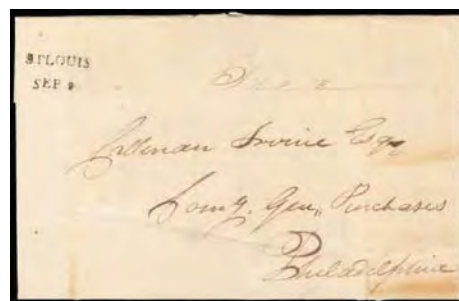 STLOUIS
SEP 9
Free
Callender Irvine Esqr
Comy. Gen,, Purchases
Philadelphia